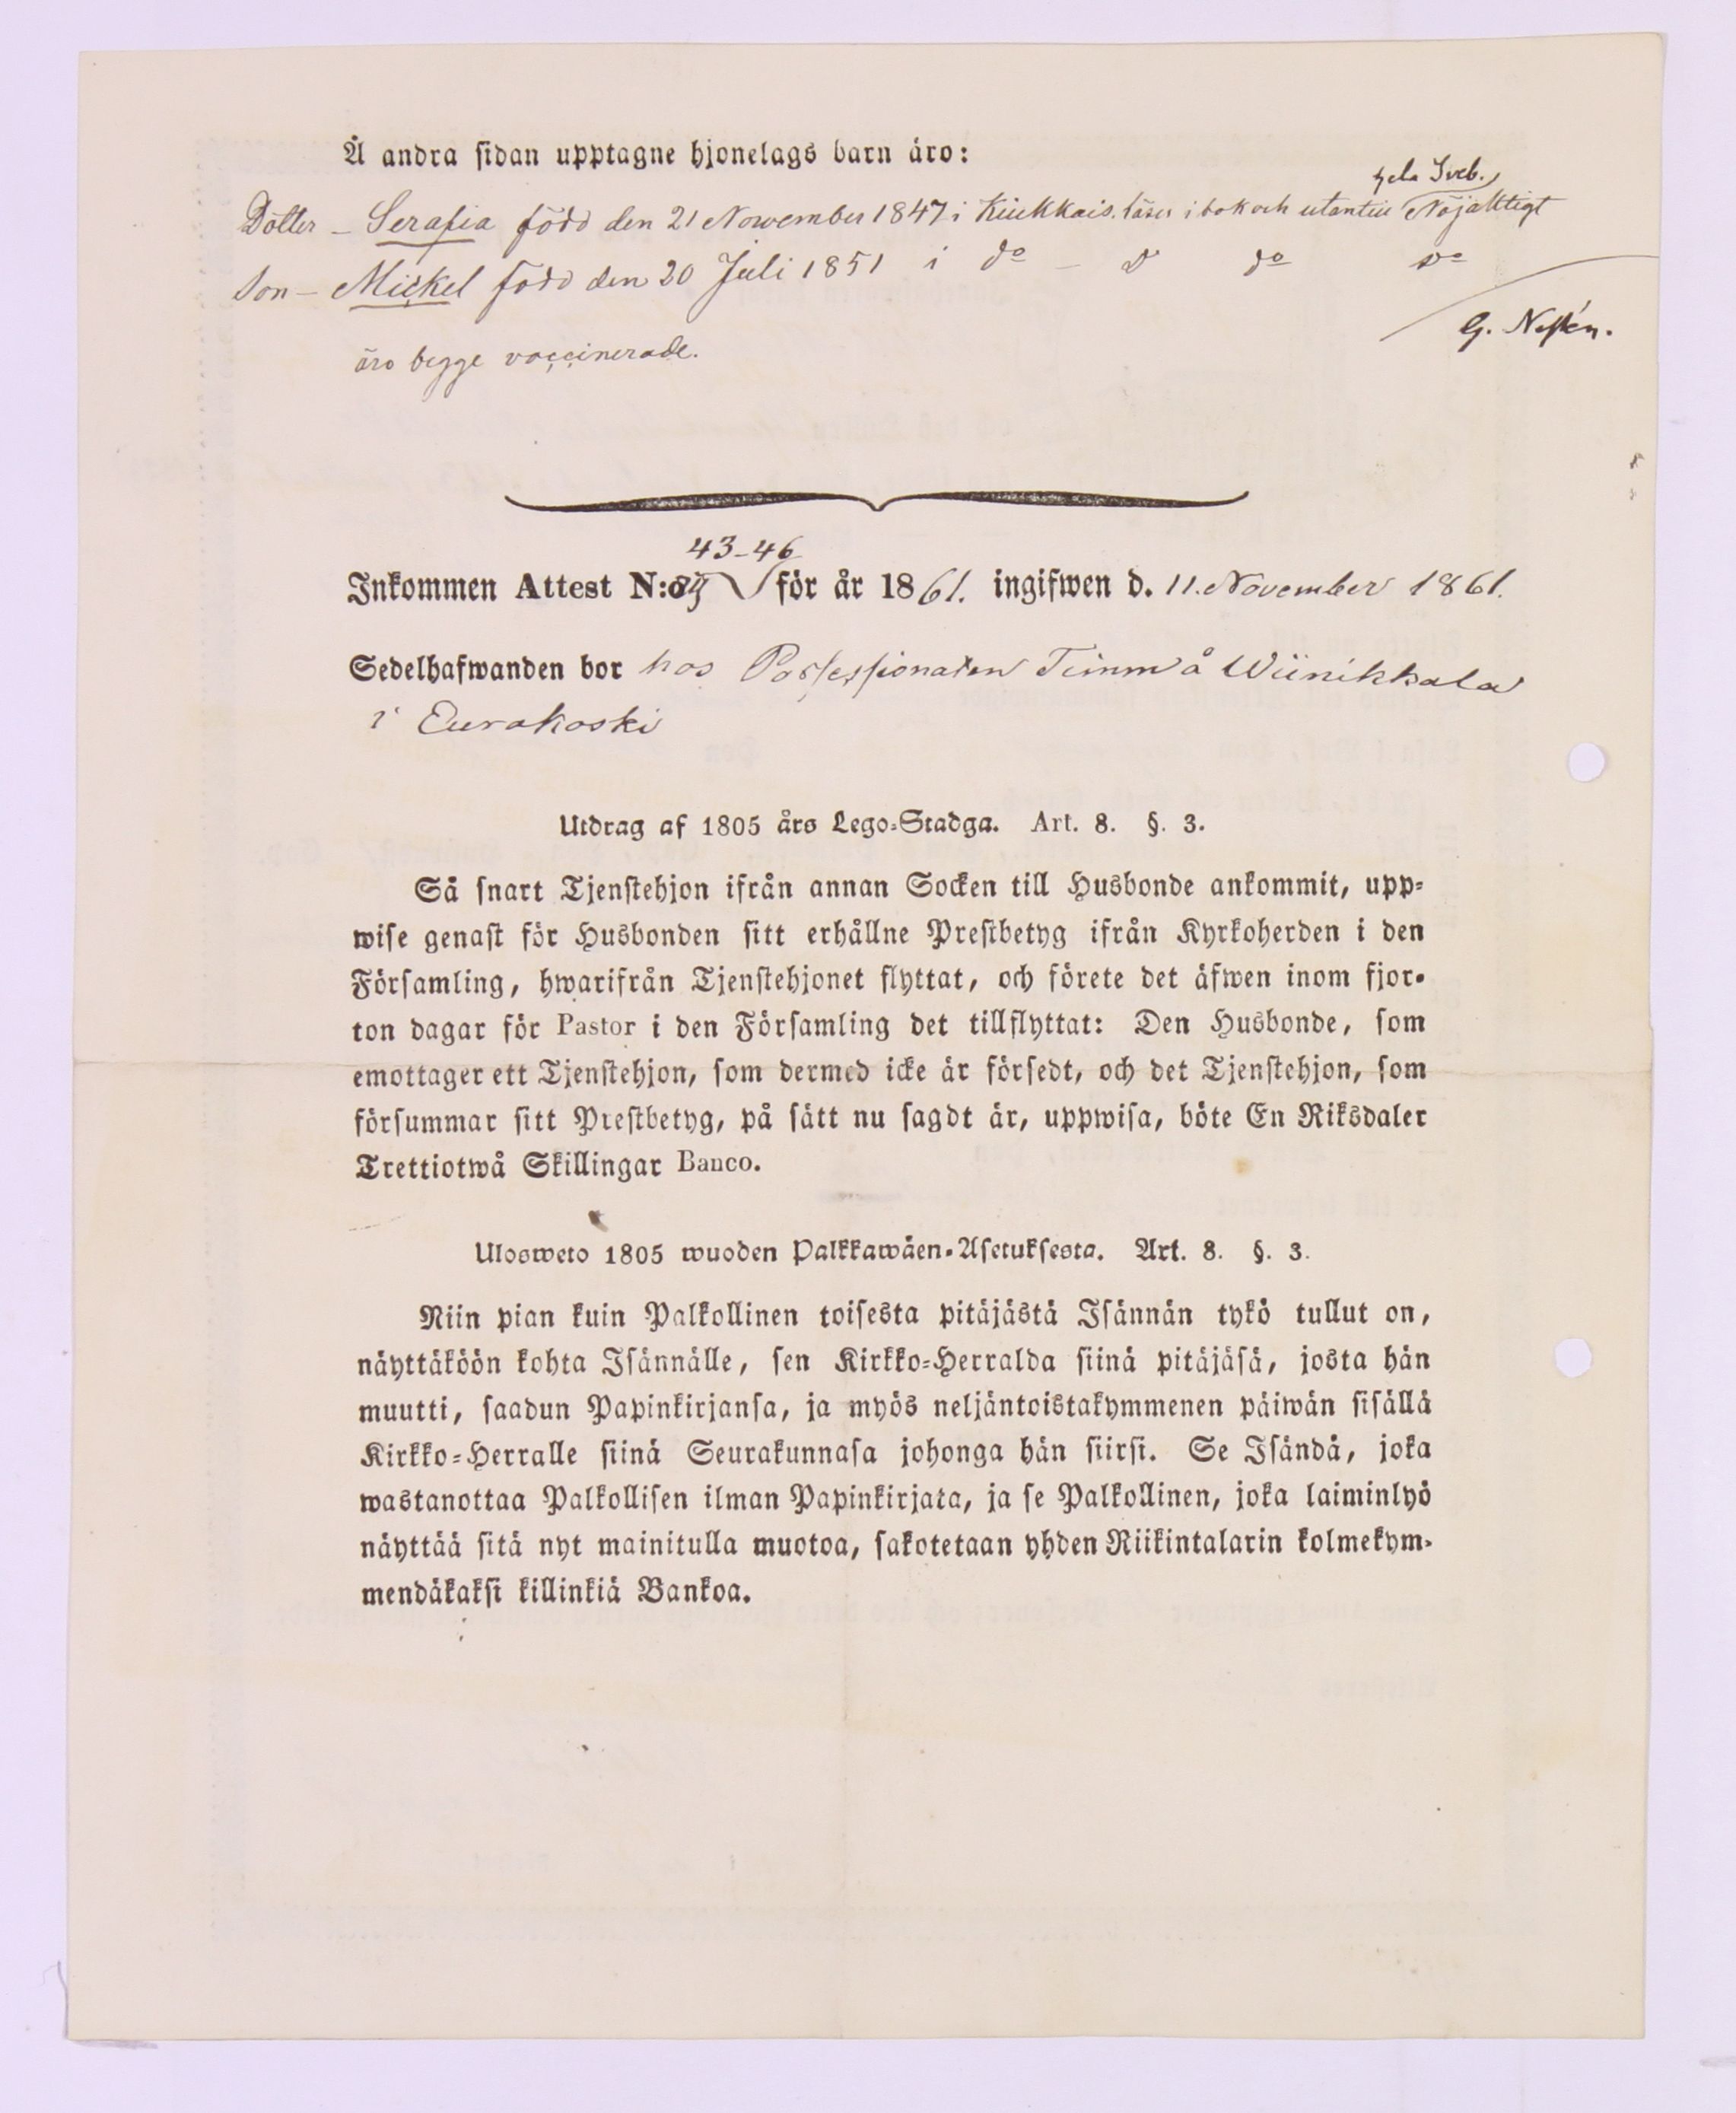 Å andra sidan upptagne hjonelags barn äro:
hela Sveb.
Dotter - Serafia född den 21 November 1847 i Kiukkais. läser i bok och utantill Nöjaktigt
Son - Mickel född den 20 Juli 1851 i do - do do do
G. Nestén.
äro begge vaccinerade.
43-46
Inkommen Attest N:o för år 1861. ingifwen d. 11. November 1861.
Sedelhafwanden bor hos Possessionaten Timm å Wiinikkala
i Eurakoski
Utdrag af 1805 års Lego-Stadga. Art. 8. §. 3.
Så snart Tjenstehjon ifrån annan Socken till Husbonde ankommit, upp-
wise genast för Husbonden sitt erhållne Prestbetyg ifrån Kyrkoherden i den
Församling, hwarifrån Tjenstehjonet flyttat, och förete det äfwen inom fjor-
ton dagar för Pastor i den Församling det tillflyttat: Den Husbonde, som
emottager ett Tjenstehjon, som dermed icke är försedt, och det Tjenstehjon, som
försummar sitt Prestbetyg, på sätt nu sagdt är, uppwisa, böte En Riksdaler
Trettiotwå Skillingar Banco.
Ulosweto 1805 wuoden Palkkawäen-Asetuksesta. Art. 8. §. 3.
Niin pian kuin Palkollinen toisesta pitäjästä Isännän tykö tullut on,
näyttäköön kohta Isännälle, sen Kirkko-Herralda siinä pitäjäsä, josta hän
muutti, saadun Papinkirjansa, ja myös neljäntoistakymmenen päiwän sisällä
Kirkko-Herralle siinä Seurakunnasa johonga hän siirsi. Se Isändä, joka
wastanottaa Palkollisen ilman Papinkirjata, ja se Palkollinen, joka laiminlyö
näyttää sitä nyt mainitulla muotoa, sakotetaan yhden Riikintalarin kolmekym-
mendäkaksi killinkiä Bankoa.